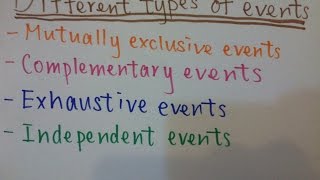 Different types of events
- Mutually exclusive events
- Complementary events
- Exhaustive events
- Independent events